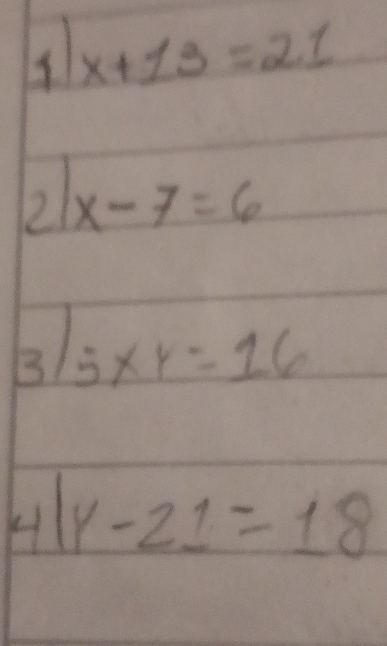 1) x + 13 = 21
2) x - 7 = 6
3) 5 x Y = 16
4) Y - 21 = 18